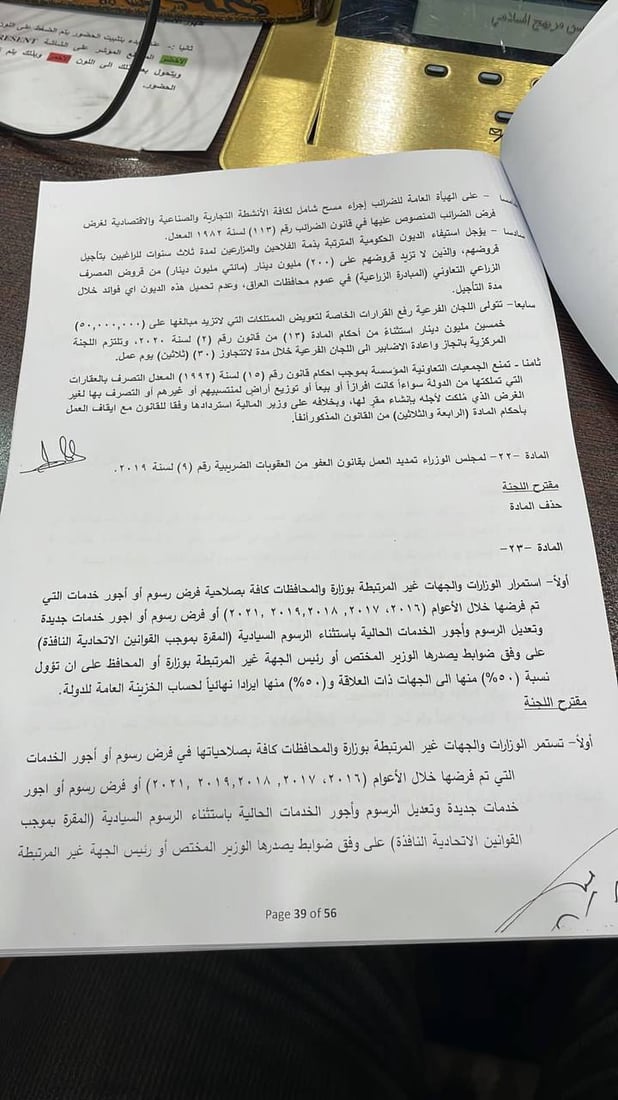 ثانيا :- عند بدء تثبيت الحضور يتم الضغط على اللون
الاخضر المربع المؤشر على الشاشة PRESENT
ويتحول بعد ذلك الى اللون الاحمر وبذلك يتم
الحضور.
خامسا - على الهيأة العامة للضرائب إجراء مسح شامل لكافة الأنشطة التجارية والصناعية والاقتصادية لغرض
فرض الضرائب المنصوص عليها في قانون الضرائب رقم (١١٣) لسنة ١٩٨٢ المعدل.
سادسا - يؤجل استيفاء الديون الحكومية المترتبة بذمة الفلاحين والمزارعين لمدة ثلاث سنوات للراغبين بتأجيل
قروضهم، والذين لا تزيد قروضهم على (٢٠٠) مليون دينار (مائتي مليون دينار) من قروض المصرف
الزراعي التعاوني (المبادرة الزراعية) في عموم محافظات العراق، وعدم تحميل هذه الديون اي فوائد خلال
مدة التأجيل.
سابعا- تتولى اللجان الفرعية رفع القرارات الخاصة لتعويض الممتلكات التي لاتزيد مبالغها على (٥٠,٠٠٠,٠٠٠)
خمسين مليون دينار استثناءً من أحكام المادة (١٣) من قانون رقم (٢) لسنة ٢٠٢٠، وتلتزم اللجنة
المركزية بانجاز واعادة الاضابير الى اللجان الفرعية خلال مدة لاتتجاوز (٣٠) (ثلاثين) يوم عمل.
ثامنا - تمنع الجمعيات التعاونية المؤسسة بموجب احكام قانون رقم (١٥) لسنة (١٩٩٢) المعدل التصرف بالعقارات
التي تملكتها من الدولة سواءاً كانت افرازاً أو بيعاً أو توزيع أراضٍ لمنتسبيهم أو غيرهم أو التصرف بها لغير
الغرض الذي مُلكت لأجله بإنشاء مقرٍ لها، وبخلافه على وزير المالية استردادها وفقا للقانون مع ايقاف العمل
بأحكام المادة (الرابعة والثلاثين) من القانون المذكورآنفاً.
المادة -٢٢- لمجلس الوزراء تمديد العمل بقانون العفو من العقوبات الضريبية رقم (٩) لسنة ٢٠١٩.
مقترح اللجنة
حذف المادة
المادة -٢٣-
أولاً- استمرار الوزارات والجهات غير المرتبطة بوزارة والمحافظات كافة بصلاحية فرض رسوم أو أجور خدمات التي
تم فرضها خلال الأعوام (٢٠١٦، ٢٠١٧, ٢٠١٨,٢٠١٩ ,٢٠٢١) أو فرض رسوم او اجور خدمات جديدة
وتعديل الرسوم وأجور الخدمات الحالية باستثناء الرسوم السيادية (المقرة بموجب القوانين الاتحادية النافذة)
على وفق ضوابط يصدرها الوزير المختص أو رئيس الجهة غير المرتبطة بوزارة أو المحافظ على ان تؤول
نسبة (٥٠%) منها الى الجهات ذات العلاقة و(٥٠%) منها ايرادا نهائياً لحساب الخزينة العامة للدولة.
مقترح اللجنة
أولاً- تستمر الوزارات والجهات غير المرتبطة بوزارة والمحافظات كافة بصلاحياتها في فرض رسوم أو أجور الخدمات
التي تم فرضها خلال الأعوام (٢٠١٦، ٢٠١٧, ٢٠١٨,٢٠١٩ ,٢٠٢١) أو فرض رسوم او اجور
خدمات جديدة وتعديل الرسوم وأجور الخدمات الحالية باستثناء الرسوم السيادية (المقرة بموجب
القوانين الاتحادية النافذة) على وفق ضوابط يصدرها الوزير المختص أو رئيس الجهة غير المرتبطة
Page 39 of 56